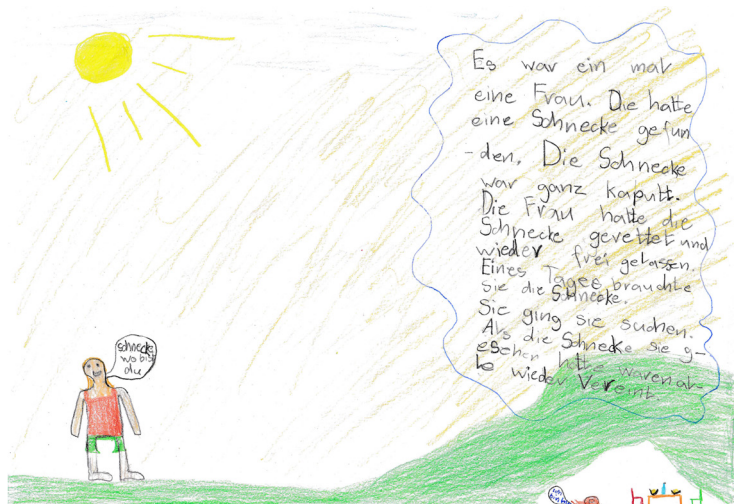 Es war ein mal
eine Frau. Die hatte
eine Schnecke gefun
-den. Die Schnecke
war ganz kaputt.
Die Frau hatte die
Schnecke gerettet und
wieder frei gelassen.
Eines Tages brauchte
sie die Schnecke.
Sie ging sie suchen.
Als die Schnecke sie g-
esehen hatte waren al-
le wieder Vereint.
schnecke
wo bist
du